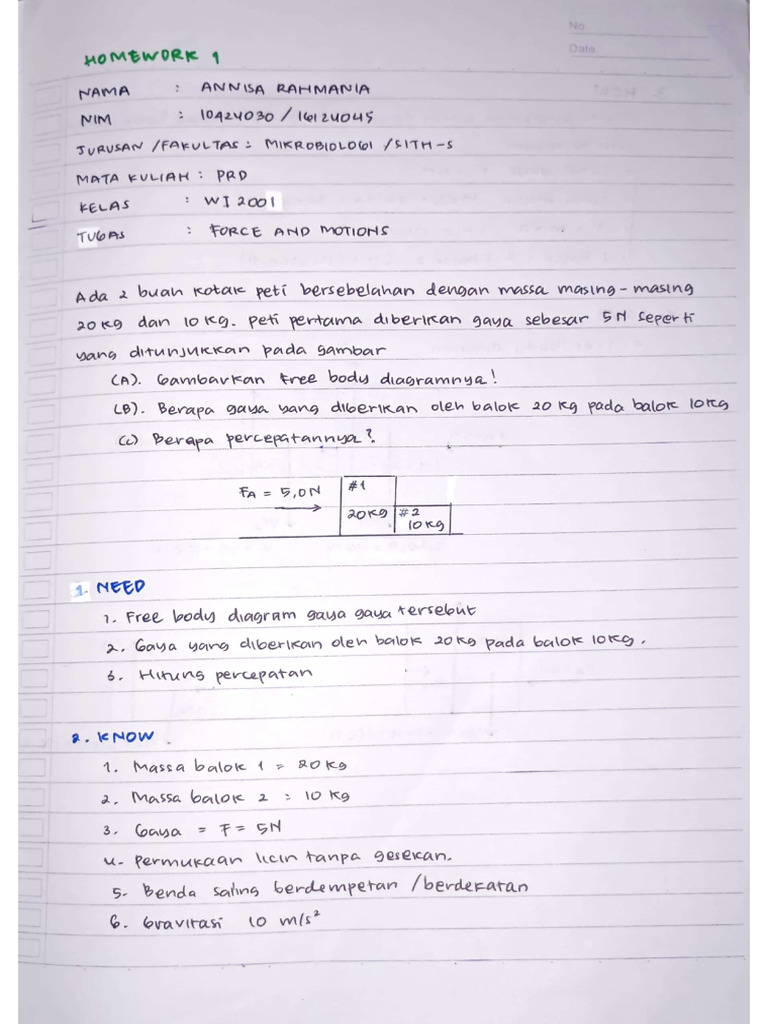 No.
Date.
HOMEWORK 1
NAMA : ANNISA RAHMANIA
NIM : 10424030 / 16124045
JURUSAN /FAKULTAS : MIKROBIOLOGI /SITH-S
MATA KULIAH : PRD
KELAS : WI 2001
TUGAS : FORCE AND MOTIONS
Ada 2 buah kotak peti bersebelahan dengan massa masing-masing
20 kg dan 10 kg. peti pertama diberikan gaya sebesar 5N seperti
yang ditunjukkan pada gambar
(A). Gambarkan free body diagramnya!
(B). Berapa gaya yang diberikan oleh balok 20 kg pada balok 10kg
(C) Berapa percepatannya?
FA = 5,0N
#1
20kg
#2
10kg
1. NEED
1. Free body diagram gaya gaya tersebut
2. Gaya yang diberikan oleh balok 20kg pada balok 10kg.
3. Hitung percepatan
2. KNOW
1. Massa balok 1 = 20kg
2. Massa balok 2 : 10 kg
3. Gaya = F = 5N
4. permukaan licin tanpa gesekan.
5. Benda saling berdempetan /berdekatan
6. Gravitasi 10 m/s²